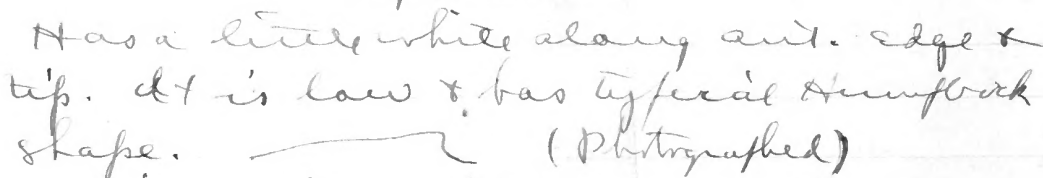 Has a little white along ant. edge &
tip. It is low & has typical Humpback
shape. (Photographed)